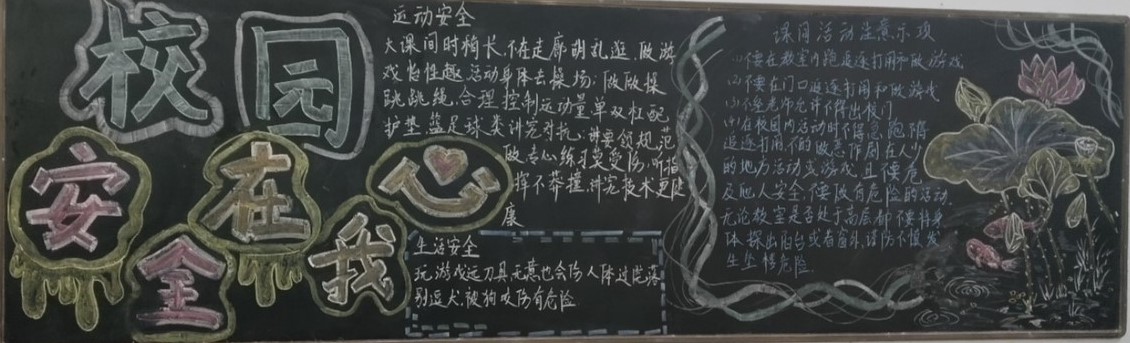 校园
安全在我心
运动安全
大课间时稍长,不在走廊明礼逛,做游
戏怡性趣,活动身体去操场;做做操
跳跳绳,合理控制运动量单双杠配
护垫,篮足球类讲究对抗;讲要领规范
做,专心练习要受伤,听指
挥不莽撞,讲究技术更健
康
生活安全
玩游戏远刀具无意也会伤人体过陀落
别逗犬,被狗咬伤有危险
课间活动注意示攻
(1)不要在教室内跑追逐打闹和做游戏
(2)不要在门口追逐打闹和做游戏
(3)不经老师允许不得出校门
(4)在校园内活动时不得急跑不得
追逐打闹,不的做恶作剧在人少
的地方活动或游戏,且不要危
及他人安全,不要做有危险的活动.
无论教室是否处于高层都不要将身
体探出阳台或者窗外,谨防不慎发
生坠楼危险.